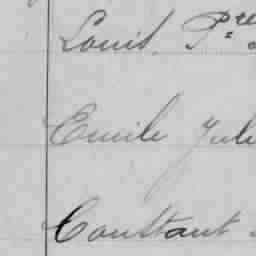 Louis. Pre
Emile Jule
Constant